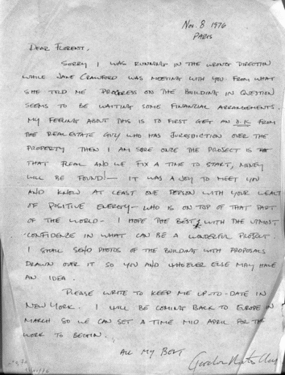 Nov. 8 1976
PARIS
DEAR FLORENT.
SORRY I WAS RUNNING IN THE WRONG DIRECTION
WHILE JANE CRAWFORD WAS MEETING WITH YOU. FROM WHAT
SHE TOLD ME PROGRESS ON THE BUILDING IN QUESTION
SEEMS TO BE WAITING SOME FINANCIAL ARRANGEMENTS.
MY FEELING ABOUT THIS IS TO FIRST GET AN O.K. FROM
THE REAL ESTATE GUY WHO HAS JURISDICTION OVER THE
PROPERTY THEN I AM SURE ONCE THE PROJECT IS
THAT REAL AND WE FIX A TIME TO START, MONEY
WILL BE FOUND! — IT WAS A JOY TO MEET YOU
AND KNOW AT LEAST ONE PERSON WITH YOUR
OF POSITIVE ENERGY — WHO IS ON TOP OF THAT PART
OF THE WORLD - I HOPE THE BEST WITH THE UTMOST
CONFIDENCE IN WHAT CAN BE A WONDERFUL PROJECT
I SHALL SEND PHOTOS OF THE BUILDING WITH PROPOSALS
DRAWN OVER IT SO YOU AND WHOEVER ELSE MAY HAVE
AN IDEA.
PLEASE WRITE TO KEEP ME UP-TO-DATE IN
NEW YORK. I WILL BE COMING BACK TO EUROPE IN
MARCH SO WE CAN SET A TIME MID APRIL FOR THE
WORK TO BEGIN.
ALL MY BEST
Gordon Matta-Clark